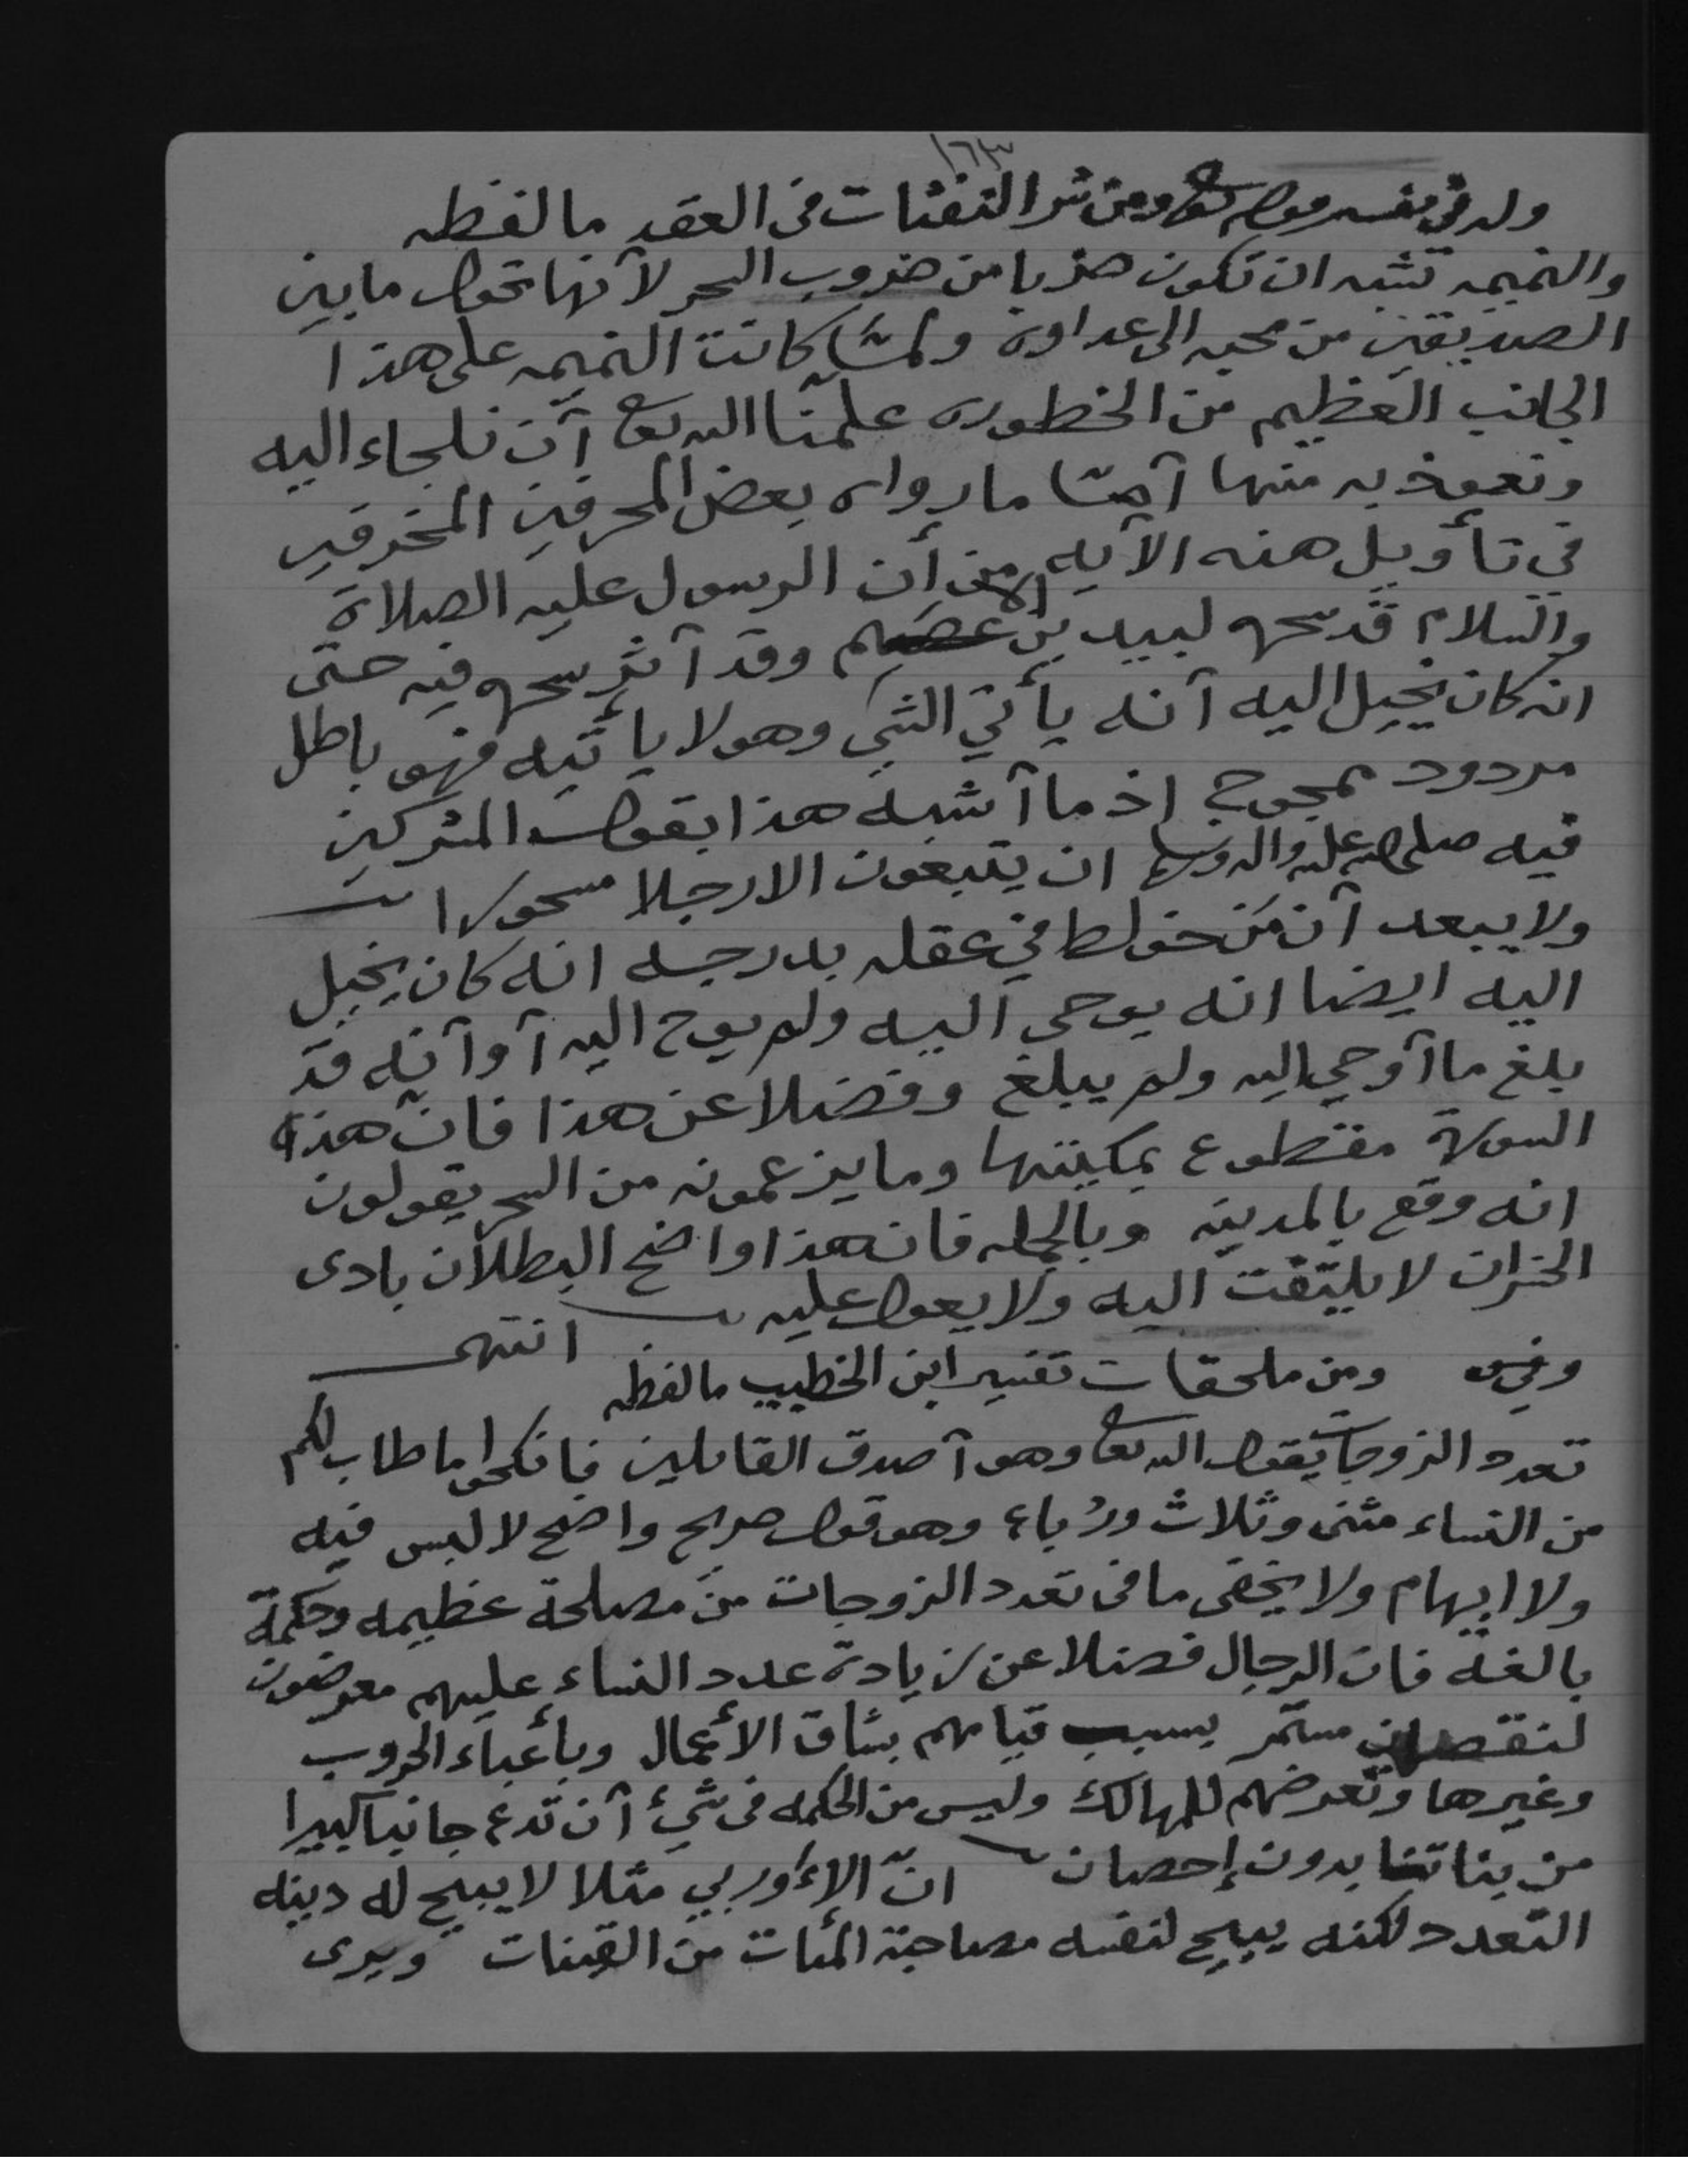 ١٦٣
وله في تفسير قوله تعا ومن شر النفثات في العقد ما لفظه
والنميمه تشبه ان تكون ضربا من ضروب السحر لأنها تحول ما بين
الصديقين من محبه الى عداوه ولمّا كانت النميمه على هذا
الجانب العظيم من الخطوره علمنا الله تعا أن نلجاء اليه
ونعوذ به منها أمّا ما رواه بعض المحرفين المخرفين
في تأويل هذه الآيه من أن الرسول عليه الصلاة
والسلام قد سحره لبيد بن الاعصم وقد أثر سحره فيه حتى
انه كان يخيل اليه أنه يأتي الشيء وهو لا يأتيه فهو باطل
مردود ممجوج اذ ما أشبه هذا بقول المشركين
فيه صلى الله عليه واله وسلم ان يتبعون الا رجلا مسحورا
ولا يبعد أن من خولط في عقله بدرجه انه كان يخيل
اليه ايضا انه يوحى اليه ولم يوح اليه أو أنه قد
بلغ ما أوحي اليه ولم يبلغ وفضلا عن هذا فان هذه
السورة مقطوع بمكيتها وما يزعمونه من السحر يقولون
انه وقع بالمدينه وبالجمله فان هذا واضح البطلان بادى
الخسران لا يلتفت اليه ولا يعول عليه انتهى
ومن ملحقات تفسير ابن الخطيب ما لفظه
تعدد الزوجات يقول الله تعا وهو أصدق القائلين فانكحوا ما طاب لكم
من النساء مثنى وثلاث ورُباع وهو قول صريح واضح لا لبس فيه
ولا ابهام ولا يخفى ما في تعدد الزوجات من مصلحة عظيمه وحكمة
بالغة فان الرجال فضلا عن زيادة عدد النساء عليهم معرضون
لنقصان مستمر بسبب قيامهم بشاق الأعمال وبأعباء الحروب
وغيرها وتعرضهم للمهالك وليس من الحكمه في شيء أن تدع جانبا كبيرا
من بناتنا بدون إحصان انّ الأوربي مثلا لا يبيح له دينه
التعدد لكنه يبيح لنفسه مصاحبة المئات من القينات ويرى